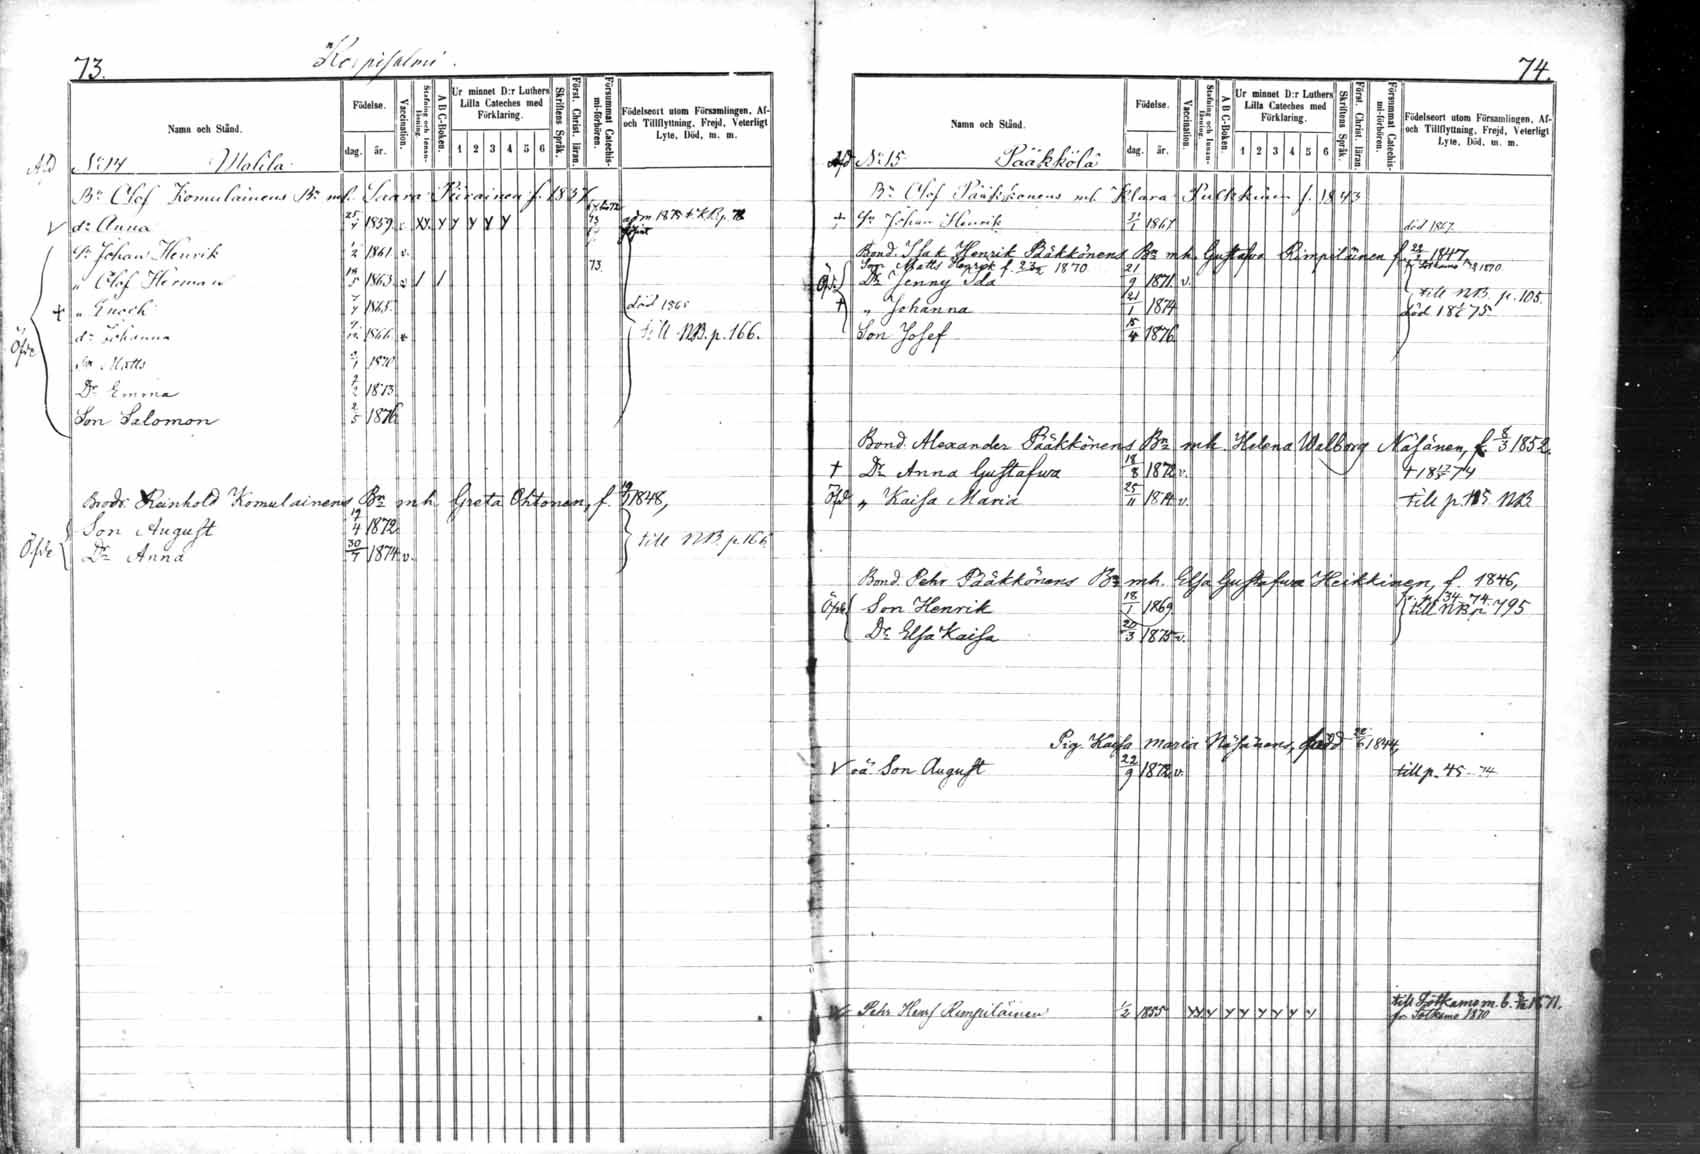 73.
Namn och Stånd.
Födelse.
dag. år.
Vaccination.
Stafning och Innan-läsning.
A B C-Boken.
Ur minnet D:r Luthers Lilla Cateches med Förklaring.
1 2 3 4 5 6
Skriftens Språk.
Först. Christ. läran.
Försummat Catechis-mi-förhören.
Födelseort utom Församlingen, Af-och Tillflyttning, Frejd, Veterligt Lyte, Död, m. m.
No 14
Bn Olof Komulainens Bn mh. Saara Piirainen f. 1837
dr Anna 25/7 1859
Sn Johan Henrik 1/2 1861 v.
„ Olof Herman 18/5 1863 v / / 73.
+ „ Enoch 1865 död 1868
dr Johanna 1866
Sn Matts 1870
till NB. p. 166.
Dr Emma 1873
Son Salomon 2/5 1876
Brodr Reinhold Komulainens Bn mh. Greta Ohtonen, f. 1848,
Son August 19/4 1872
Dr Anna 30/7 1874 v.
till NB. p. 166
74.
Namn och Stånd.
Födelse.
dag. år.
Vaccination.
Stafning och Innan-läsning.
A B C-Boken.
Ur minnet D:r Luthers Lilla Cateches med Förklaring.
1 2 3 4 5 6
Skriftens Språk.
Först. Christ. läran.
Försummat Catechis-mi-förhören.
Födelseort utom Församlingen, Af-och Tillflyttning, Frejd, Veterligt Lyte, Död, m. m.
No 15 Pääkkölä
Bn Olof Pääkkönens mh. Klara Pulkkinen f. 1843
+ Sn Johan Henrik 1867 död 1867.
Bond. Isak Henrik Pääkkönens Bn mh. Gustafva Rimpiläinen f. 1847
Son Matts Henrik f. 1870
Dr Jenny Ida 21/9 1871 v.
till NB. p. 105.
+ „ Johanna 21/1 1874 död 1875
Son Josef 15/4 1876
Bond. Alexander Pääkkönens Bn mh. Helena Walborg Näsänen, f. 8/3 1852.
+ Dr Anna Gustafva 18/8 1872 v.
„ Kaisa Maria 25/11 1874 v. till p. 105 NB.
Bond. Pehr Pääkkönens Bn mh. Elsa Gustafva Heikkinen, f. 1846,
Son Henrik 18/1 1869
till NB p. 795
Dr Elsa Kaisa 20/3 1875 v.
Pig. Kaisa Maria Näsänens, född 1844,
V oä Son August 22/9 1872 v. till p. 45 74
Pehr Henr Rimpiläinen 1/2 1855
fr. Sotkamo 1870